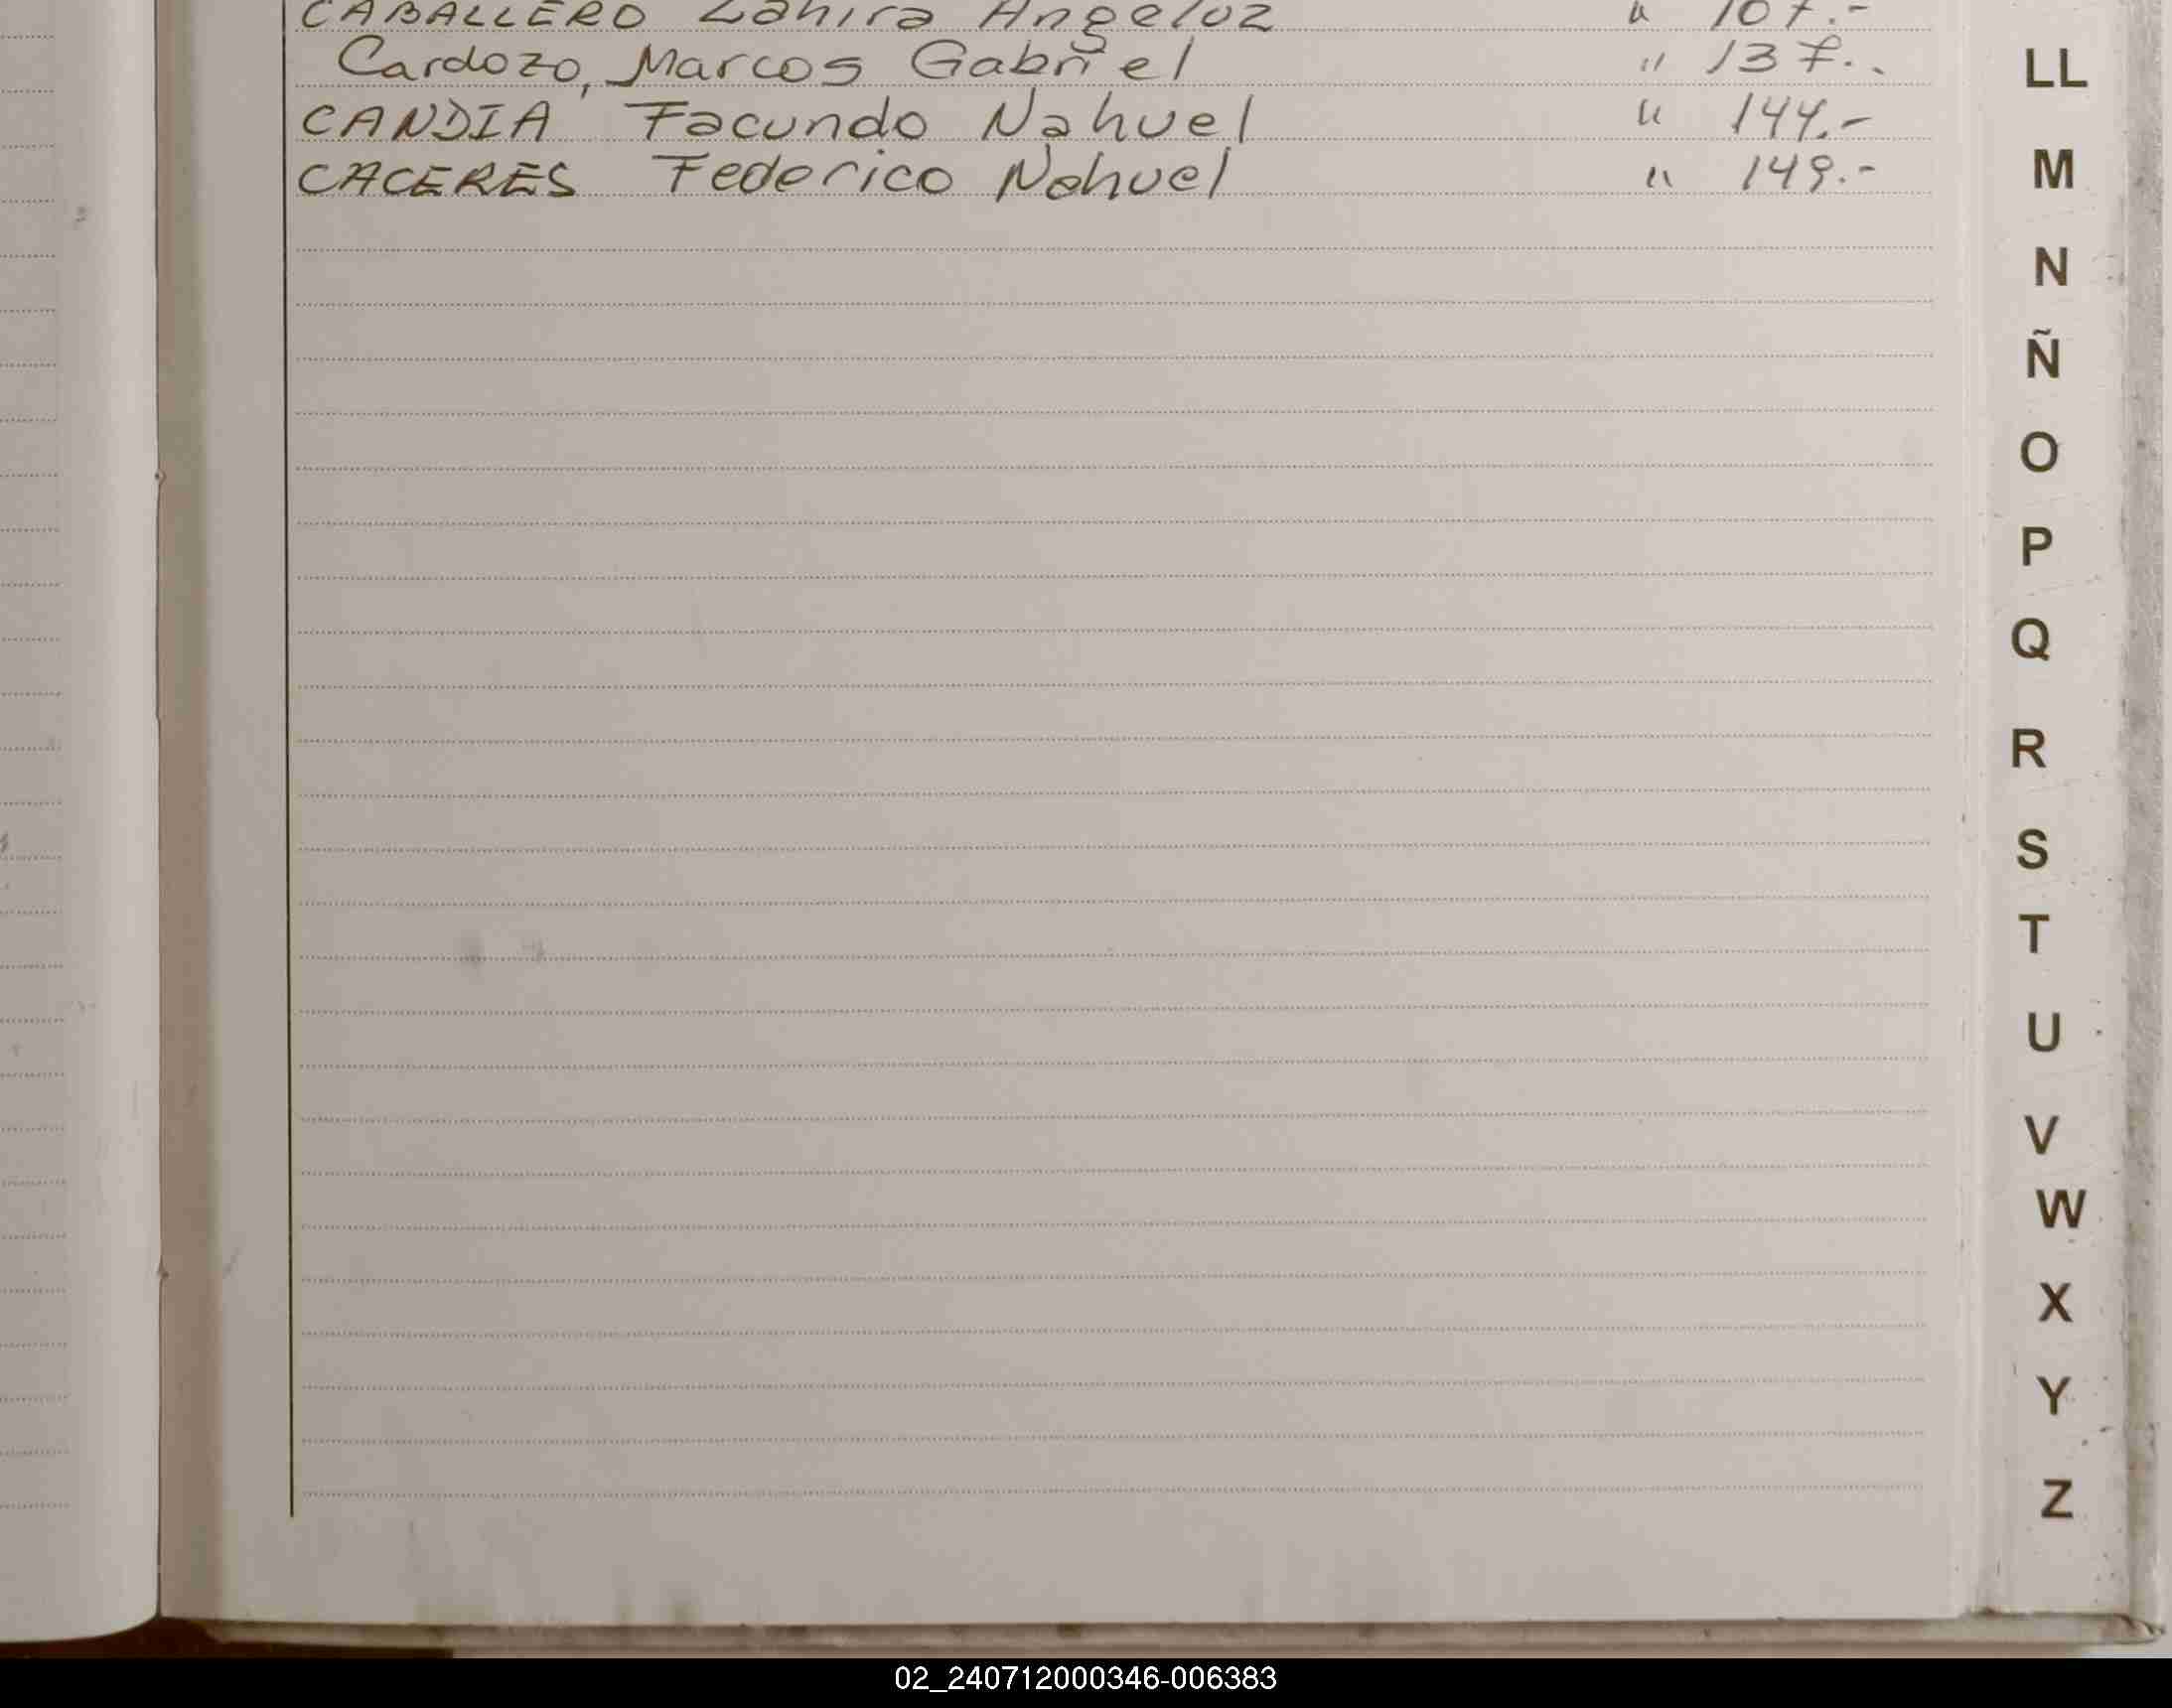 CABALLERO Zahira Angeluz " 107.-
Cardozo, Marcos Gabriel " 137.-
CANDIA Facundo Nahuel " 144.-
CACERES Federico Nahuel " 149.-
LL
M
N
Ñ
O
P
Q
R
S
T
U
V
W
X
Y
Z
02_240712000346-006383